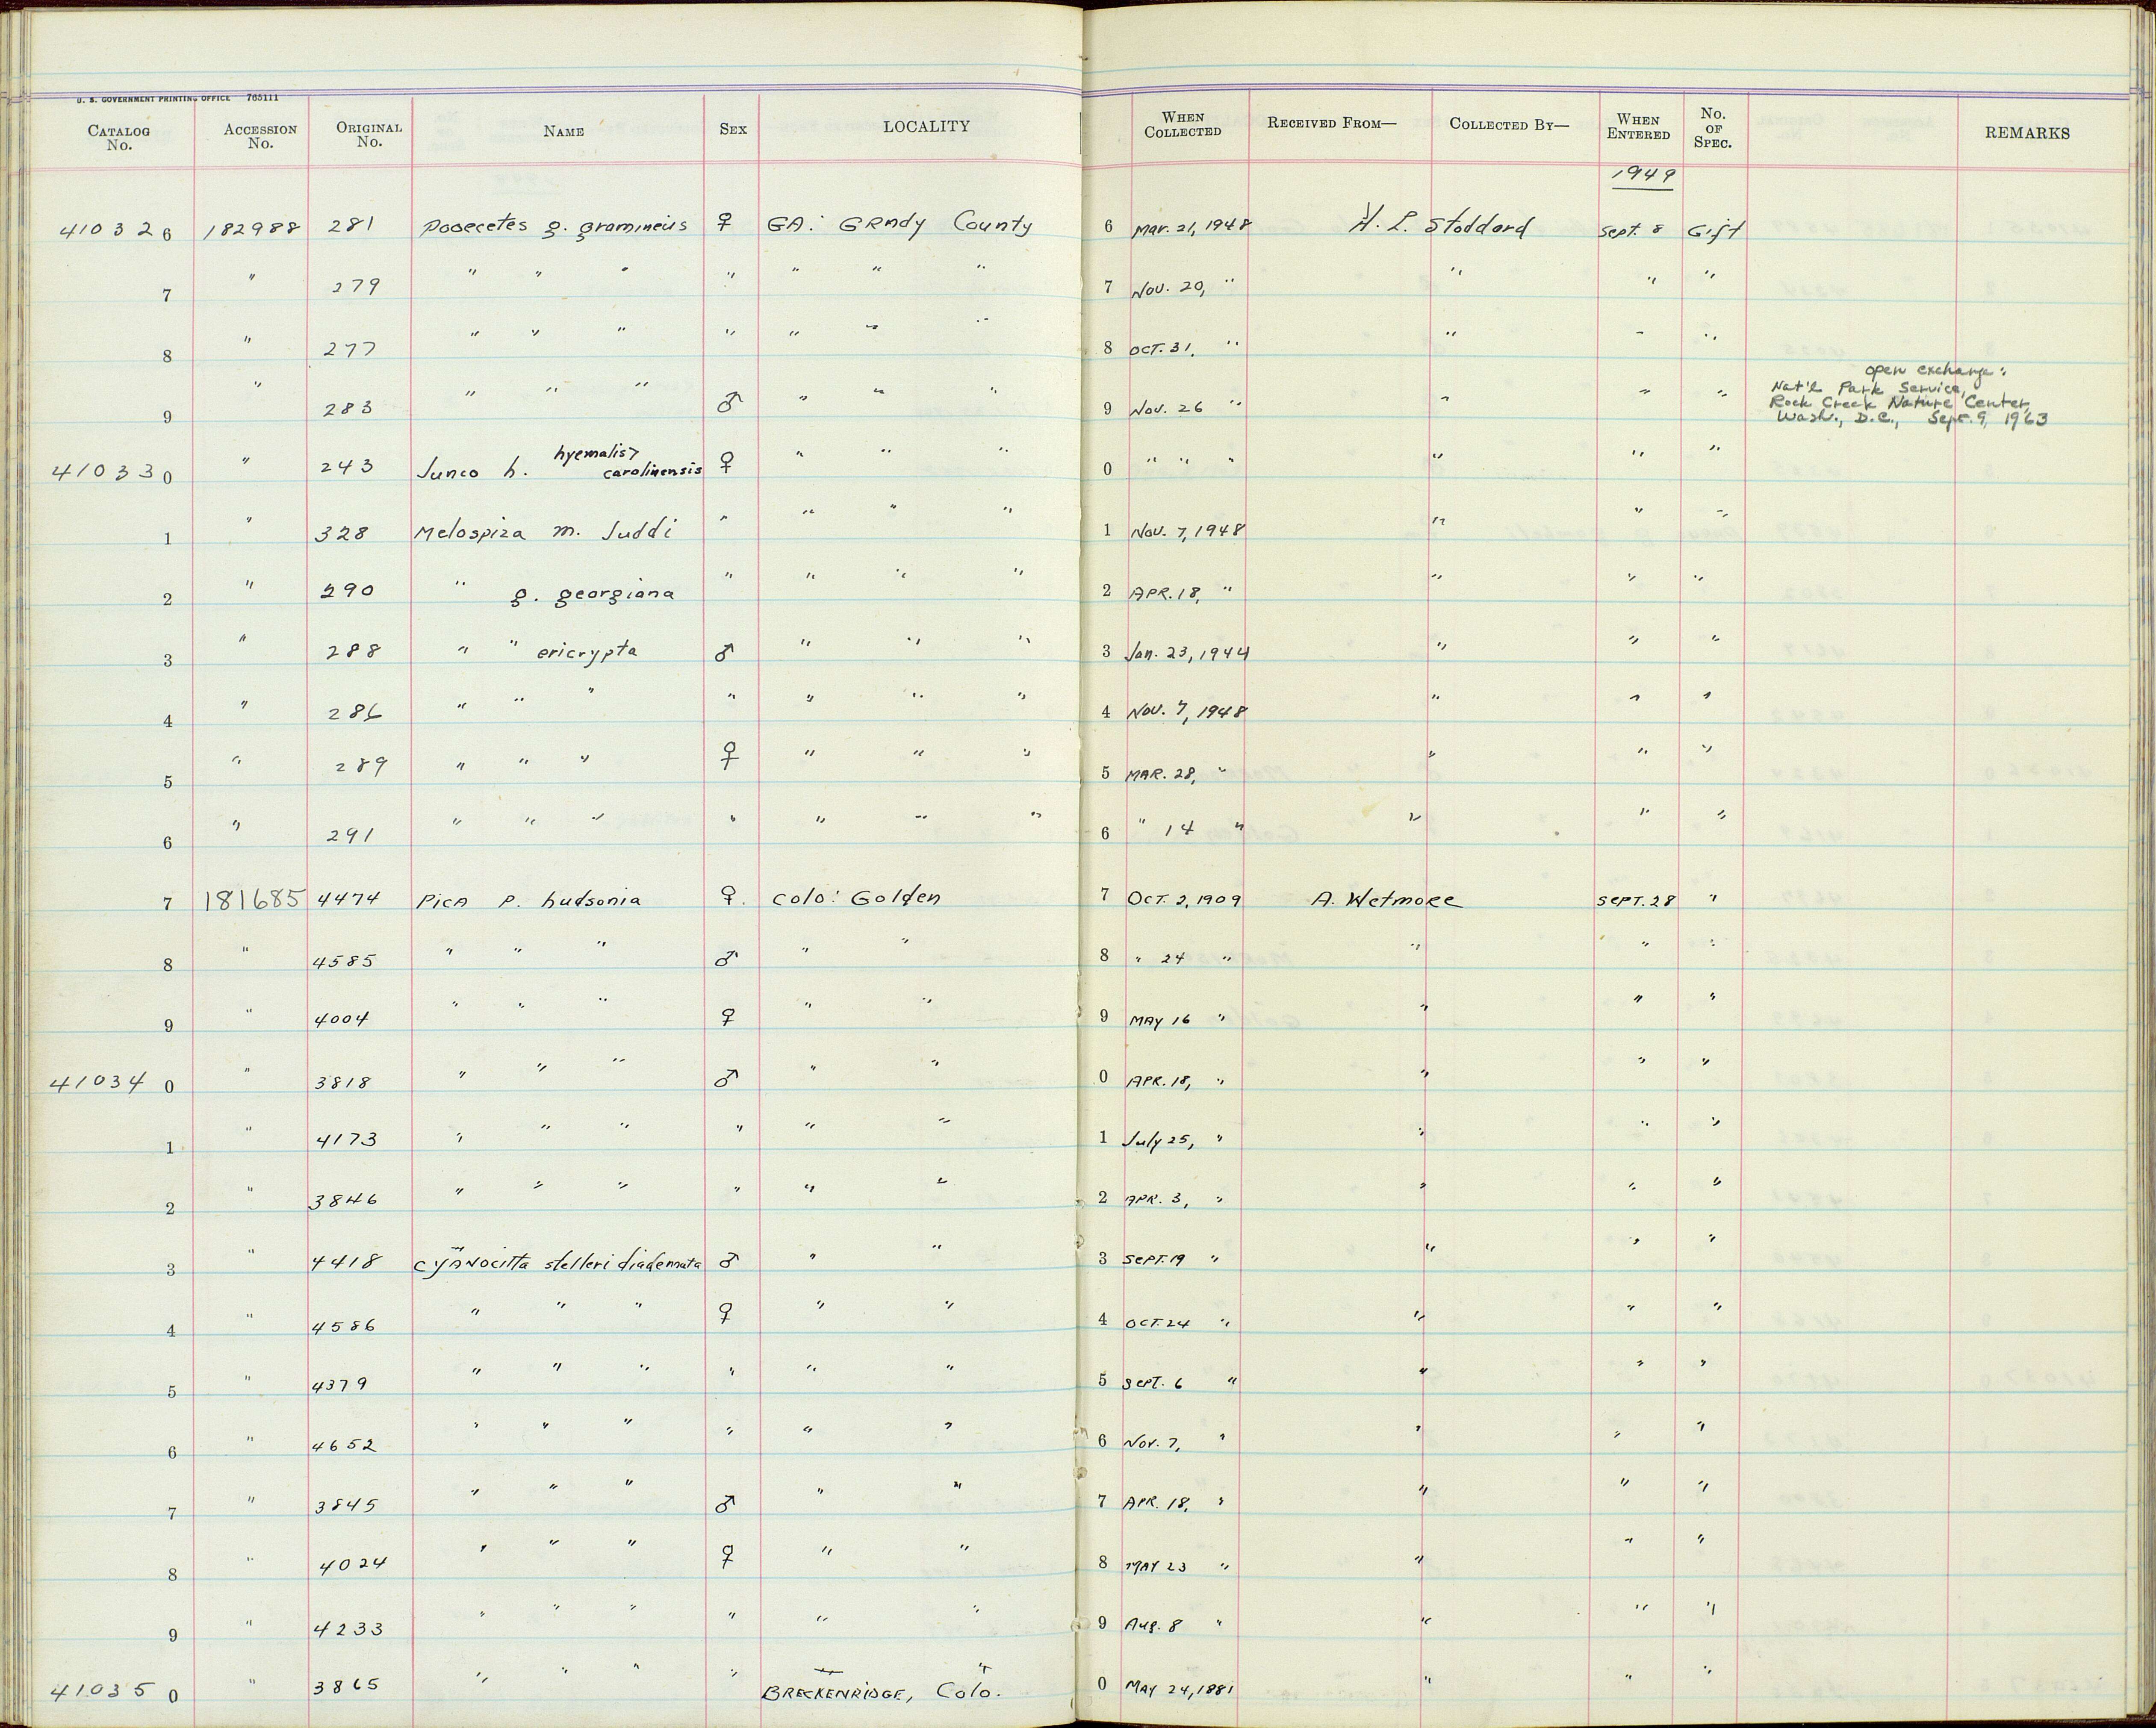 U. S. GOVERNMENT PRINTING OFFICE 765111
CATALOG No. ACCESSION No. ORIGINAL No. NAME SEX LOCALITY WHEN COLLECTED RECEIVED FROM— COLLECTED BY— WHEN ENTERED No. OF SPEC. REMARKS
1949
410326 182988 281 Pooecetes g. gramineus ♀ GA: GRady County 6 Mar. 21, 1948 H. L. Stoddard Sept. 8 Gift
7 " 279 " " " " " " " 7 Nov. 20, " " " "
8 " 277 " " " " " " " 8 OCT. 31, " " " "
open exchange:
Nat'l Park Service,
Rock Creek Nature Center
Wash., D.C., Sept. 9, 1963
9 " 283 " " " ♂ " " " 9 Nov. 26 " " " "
410330 " 243 Junco h. hyemalis> carolinensis ♀ " " " 0 " " " " " "
1 " 328 Melospiza m. Juddi " " " " 1 Nov. 7, 1948 " " "
2 " 290 " g. georgiana " " " " 2 APR. 18, " " " "
3 " 288 " " ericrypta ♂ " " " 3 Jan. 23, 1944 " " "
4 " 286 " " " " " " " 4 Nov. 7, 1948 " " "
5 " 289 " " " ♀ " " " 5 MAR. 28, " " " "
6 " 291 " " " " " " " 6 " 14 " " " "
7 181685 4474 Pica P. hudsonia ♀. Colo: Golden 7 OCT. 2, 1909 A. Wetmore SEPT. 28 "
8 " 4585 " " " ♂ " " 8 " 24 " " " "
9 " 4004 " " " ♀ " " 9 MAY 16 " " " "
410340 " 3818 " " " ♂ " " 0 APR. 18, " " " "
1 " 4173 " " " " " " 1 July 25, " " " "
2 " 3846 " " " " " " 2 APR. 3, " " " "
3 " 4418 Cyanocitta stelleri diademata ♂ " " 3 SEPT. 19 " " " "
4 " 4586 " " " ♀ " " 4 OCT. 24 " " " "
5 " 4379 " " " " " " 5 SEPT. 6 " " " "
6 " 4652 " " " " " " 6 Nov. 7, " " " "
7 " 3845 " " " ♂ " " 7 APR. 18, " " " "
8 " 4024 " " " ♀ " " 8 MAY 23 " " " "
9 " 4233 " " " " " " 9 Aug. 8 " " " "
410350 " 3865 " " " " BRECKENRIDGE, Colo. 0 MAY 24, 1881 " " "